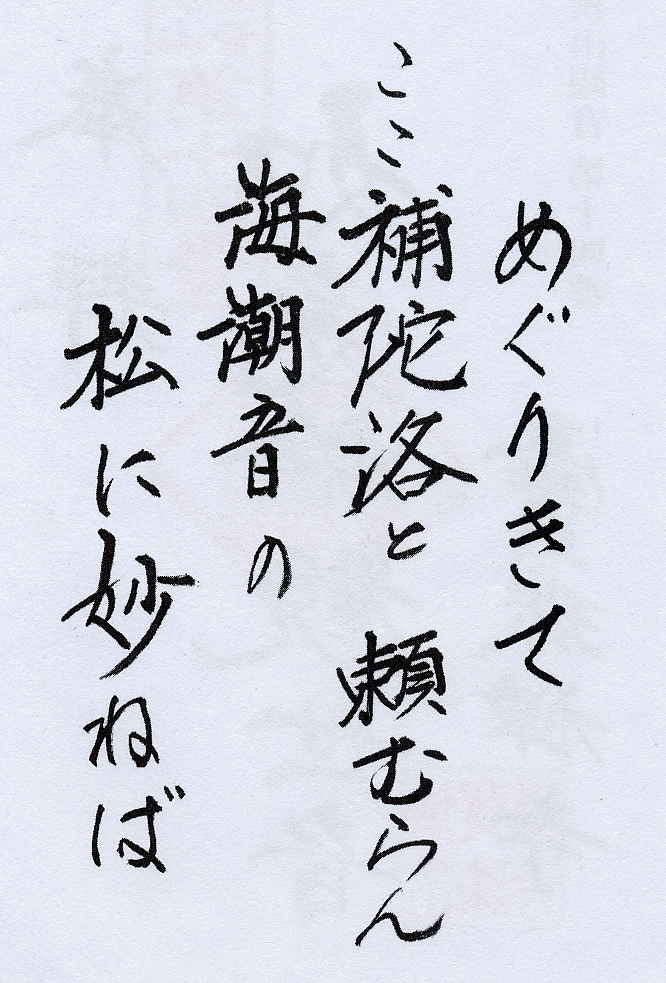 めぐりきて
ここ補陀落と 頼むらん
海潮音の
松に妙ねば